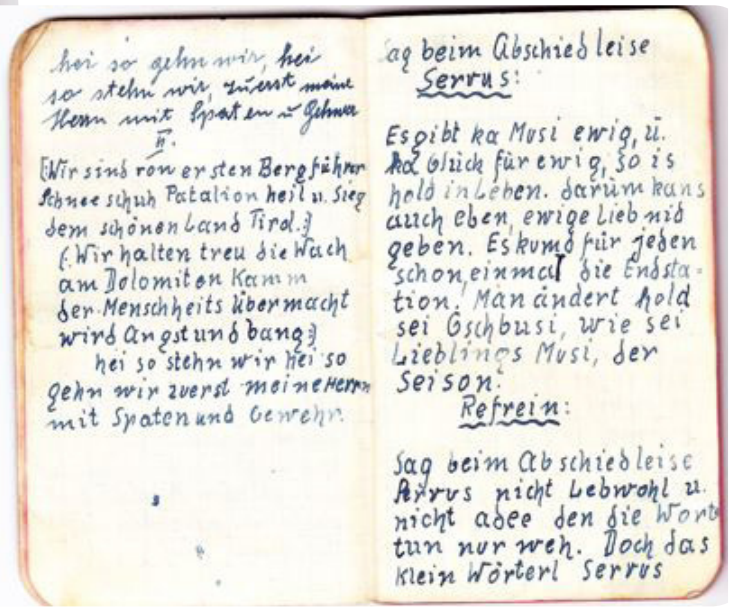 hei so gehn wir, hei
so stehn wir, zuerst meine
Herrn mit Spaten u Gehwer
II.
[:Wir sind von ersten Bergführer
Schneeschuh Patalion heil u. Sieg
dem schönen Land Tirol.:]
(:Wir halten treu die Wach
am Dolomiten Kamm
der Menschheits übermacht
wird Angst und bang:)
hei so stehn wir hei so
gehn wir zuerst meine Herrn
mit Spaten und Gewehr.
Sag beim Abschied leise
Servus:
Es gibt ka Musi ewig, ü.
ka Glück für ewig, so is
hold in Leben. darüm kans
auch eben, ewige Lieb nid
geben. Es kumd für jeden
schon, einmal die Endsta-
tion. Man ändert hold
sei Gschbusi, wie sei
Lieblings Musi, der
Seison.
Refrein:
Sag beim Abschied leise
Servus nicht Lebwohl u.
nicht adee den die Worte
tun nur weh. Doch das
klein Wörterl Servus